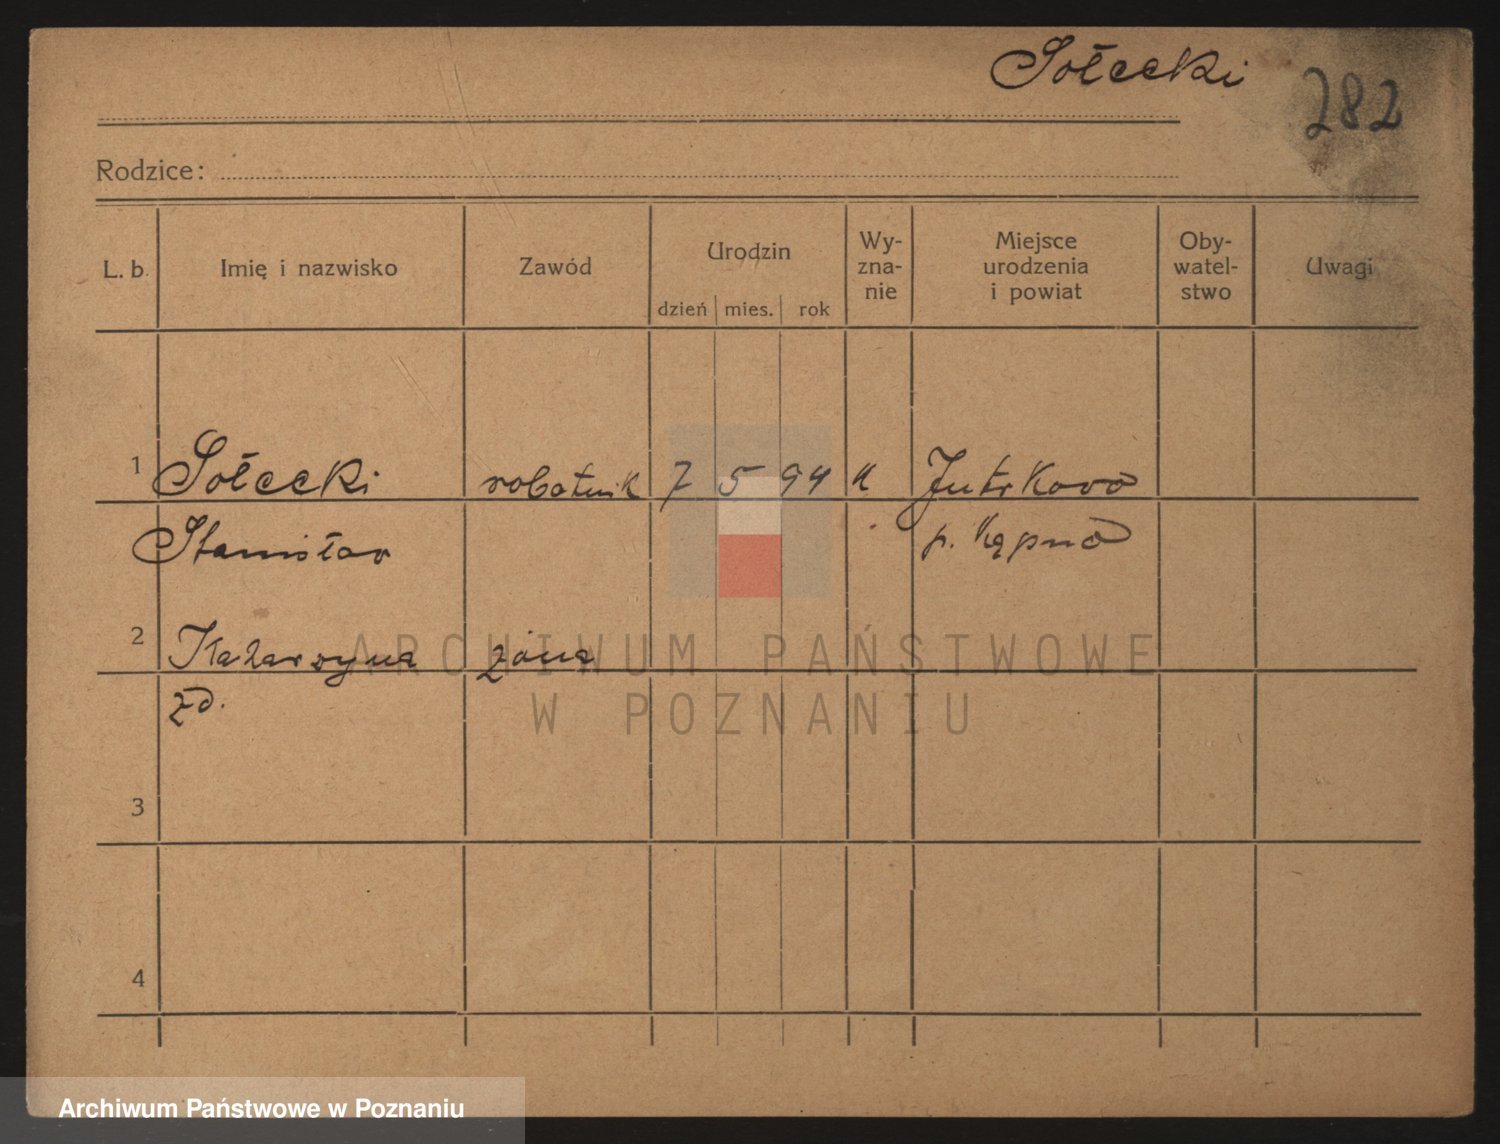 Sołecki
282
Rodzice:
L. b. Imię i nazwisko Zawód Urodzin Wy- Miejsce Oby- Uwagi
zna- urodzenia watel-
nie i powiat stwo
dzień mies. rok
1 Sołecki robotnik 7 5 94 k Jutrkowo
Stanisław p. Kępno
2 Katarzyna żona
zd.
3
4
ARCHIWUM PAŃSTWOWE
W POZNANIU
Archiwum Państwowe w Poznaniu